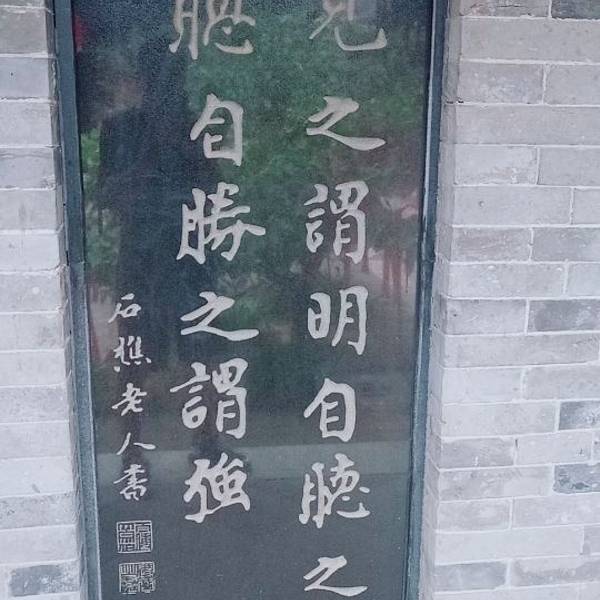 見之謂明自聽之
聰自勝之謂強
石樵老人書